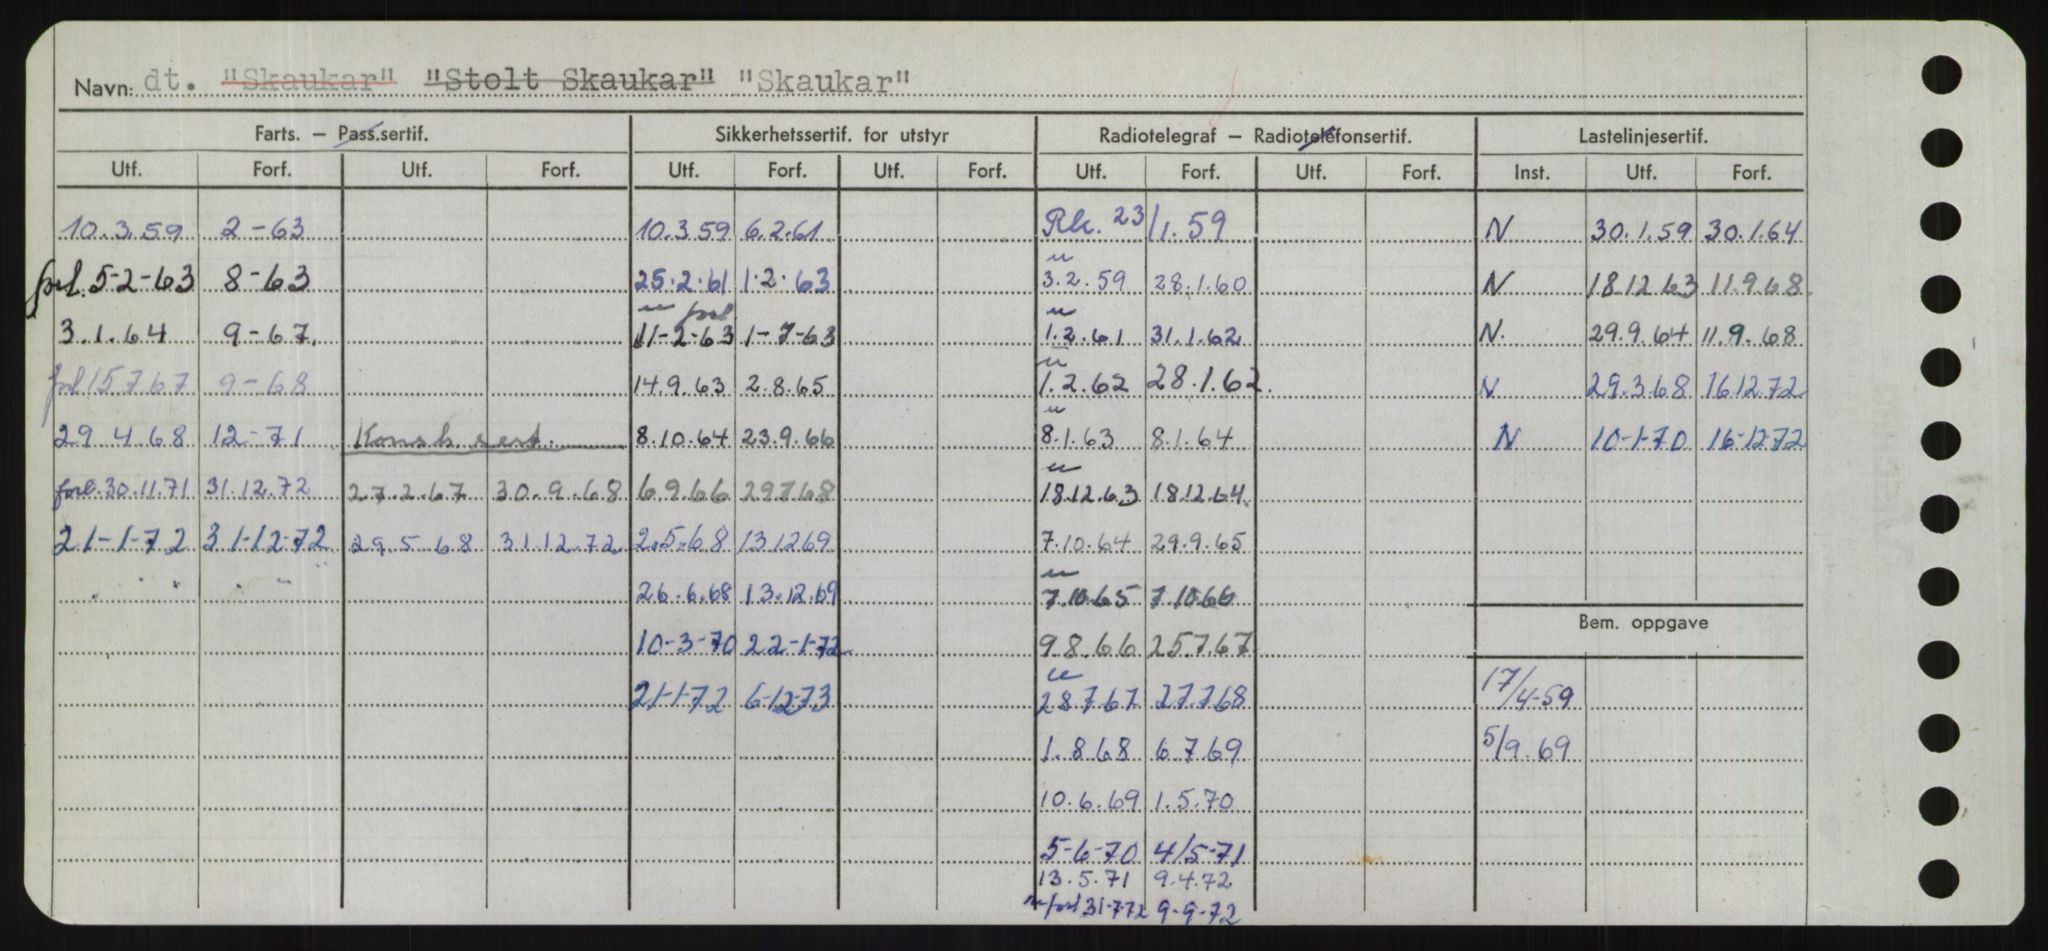 Navn: dt. "Skaukar" "Stolt Skaukar" "Skaukar"
Farts. – Pass.sertif. Sikkerhetssertif. for utstyr Radiotelegraf – Radiotelefonsertif. Lastelinjesertif.
Utf. Forf. Utf. Forf. Utf. Forf. Utf. Forf. Utf. Forf. Utf. Forf. Inst. Utf. Forf.
10.3.59 2-63 10.3.59 6.2.61 23/1.59 N 30.1.59 30.1.64
u
forl. 5-2-63 8-63 25.2.61 1.2.63 3.2.59 28.1.60 N 18.12.63 11.9.68
u forl u
3.1.64 9-67. 11-2-63 1-7-63 1.2.61 31.1.62 N. 29.9.64 11.9.68
u
forl 15.7.67 9-68 14.9.63 2.8.65 1.2.62 28.1.62. N 29.3.68 16.12.72
u
29.4.68 12-71 8.10.64 23.9.66 8.1.63 8.1.64 N 10-1-70 16-12-72
u
forl. 30.11.71 31.12.72 27.2.67 30.9.68 6.9.66 29.7.68 18.12.63 18.12.64.
21-1-72 31-12-72 29.5.68 31.12.72 2.5.68 13.12.69 7.10.64 29.9.65
u
26.6.68 13.12.69 7.10.65 7.10.66
Bem. oppgave
10-3-70 22-1-72 9.8.66 25.7.67
u
21-1-72 6-12-73 28.7.67 27.7.68 17/4-59
1.8.68 6.7.69 5/9.69
10.6.69 1.5.70
5-6-70 4/5-71
13.5.71 9.4.72
forl 31-7-72 9-9-72